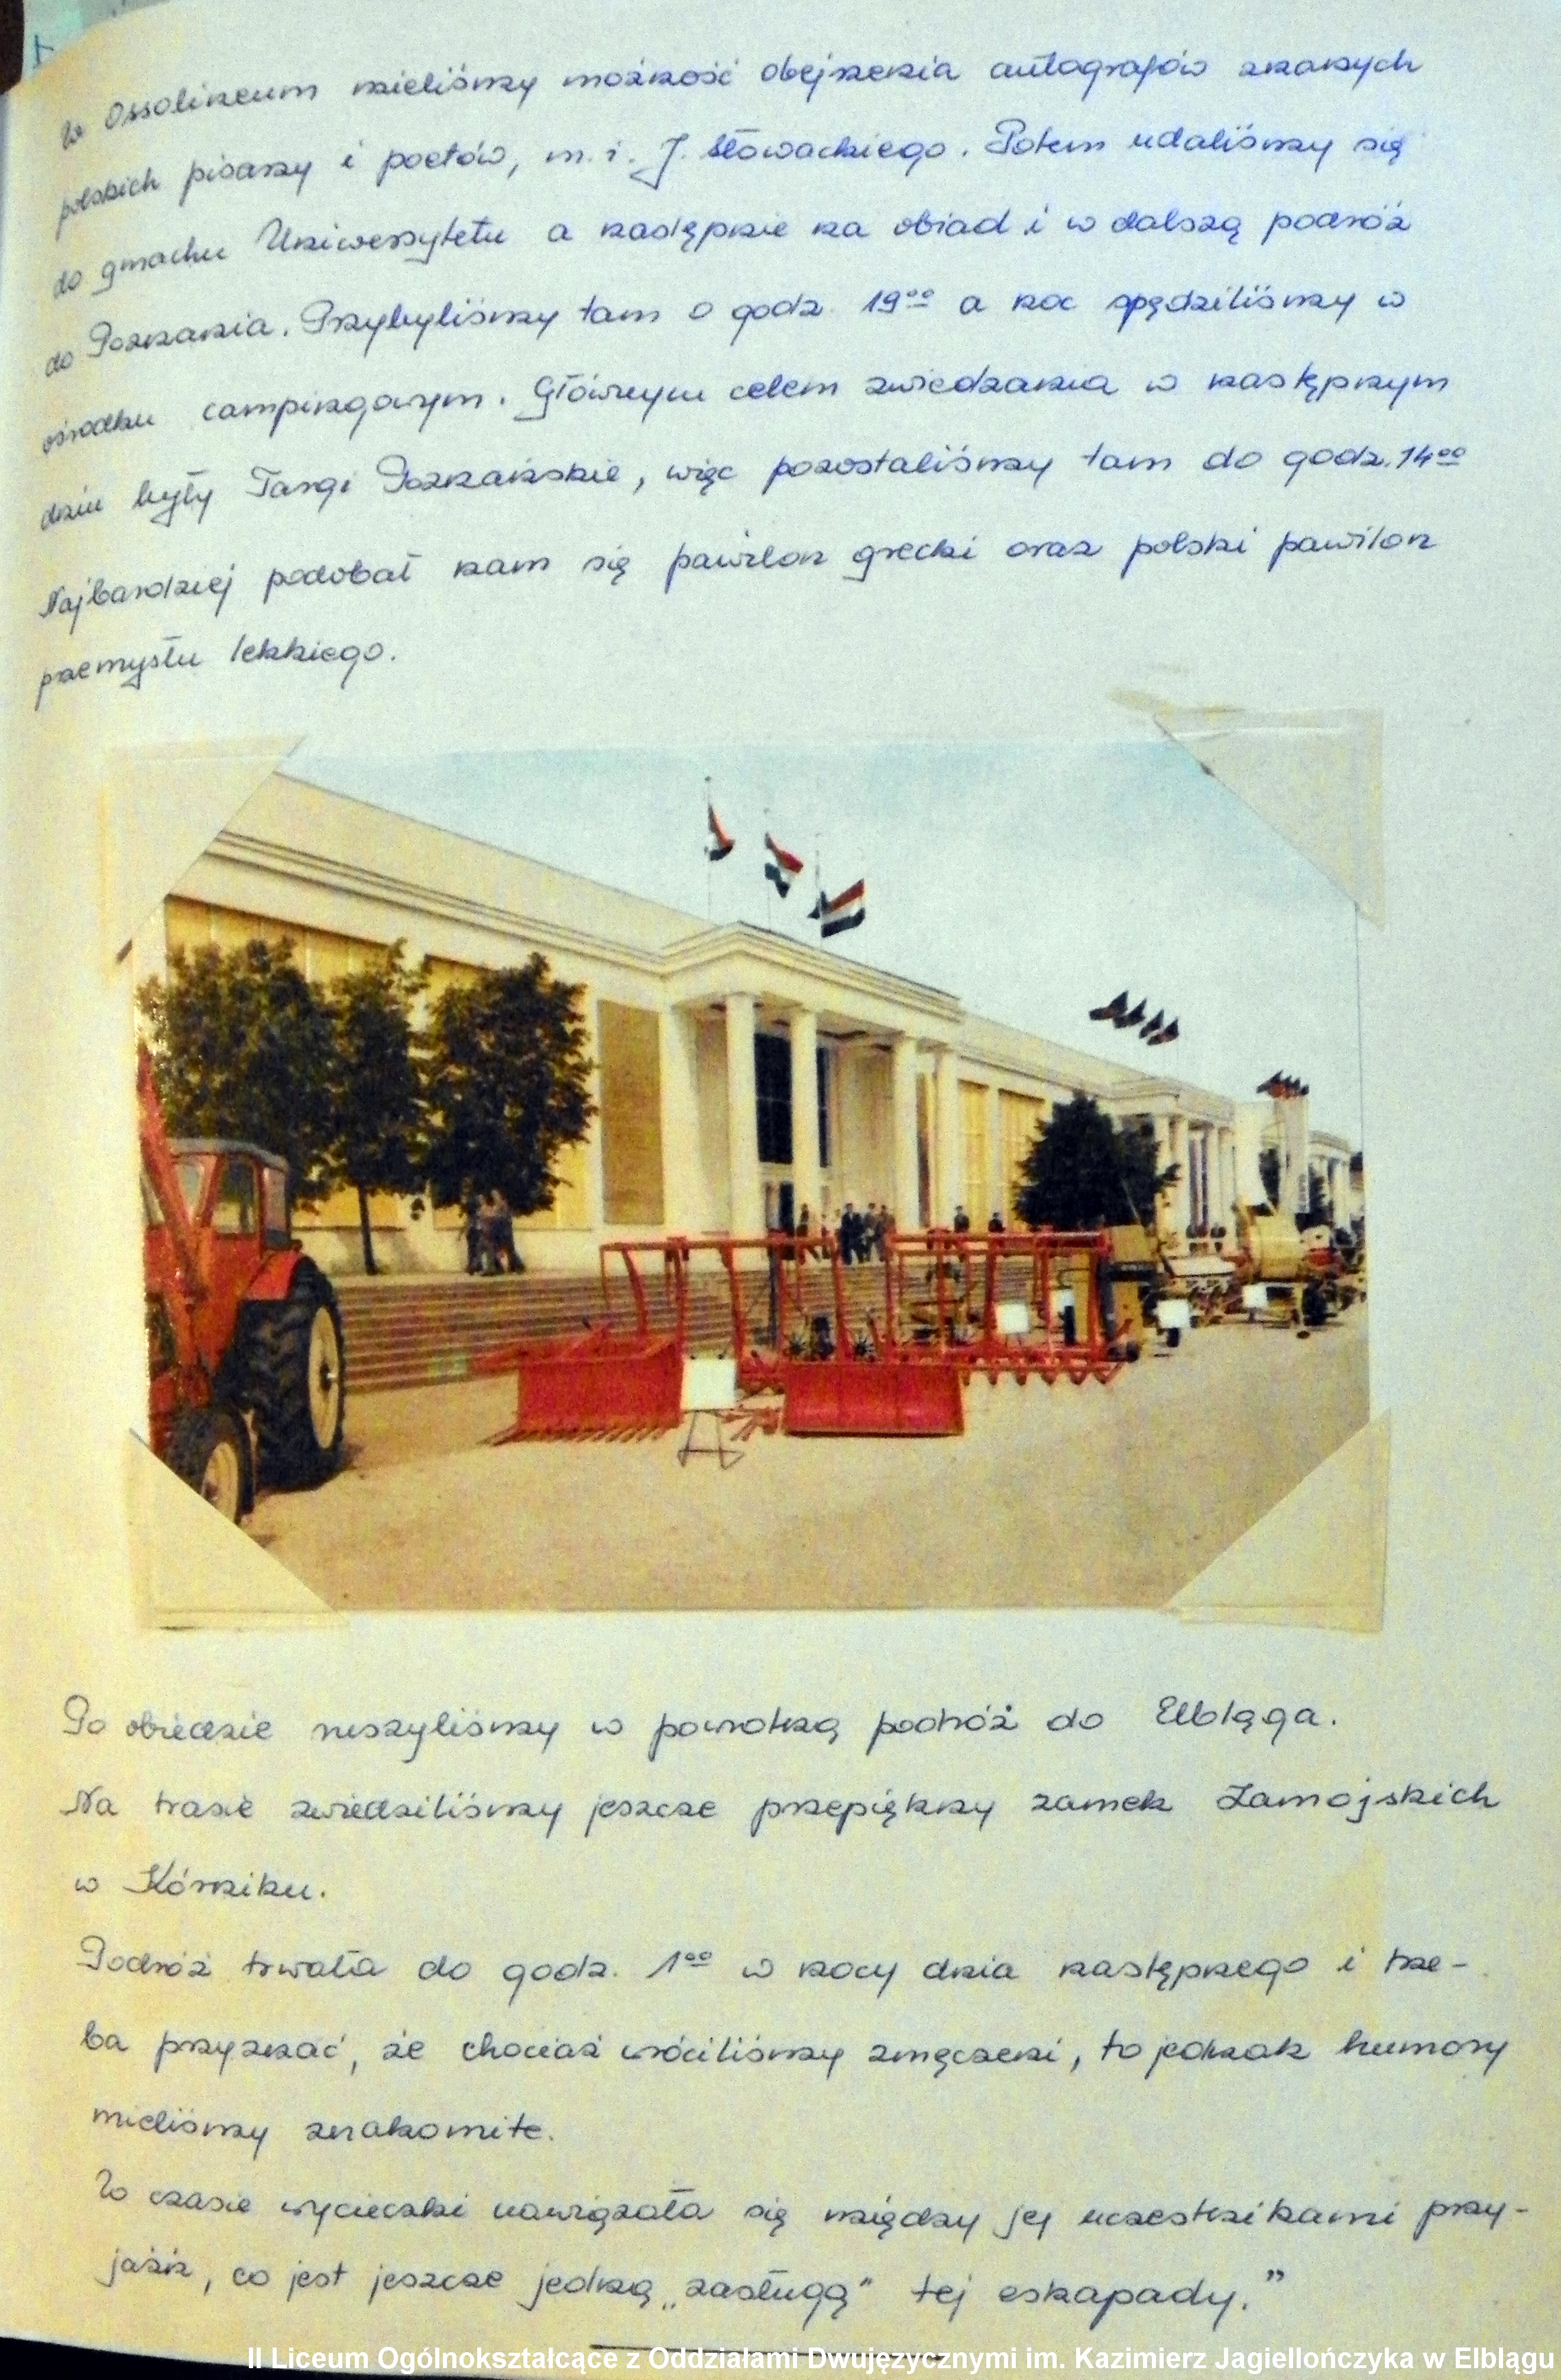 W Ossolineum mieliśmy możność obejrzenia autografów znanych
polskich pisarzy i poetów, m. i. J. Słowackiego. Potem udaliśmy się
do gmachu Uniwersytetu a następnie na obiad i w dalszą podróż
do Poznania. Przybyliśmy tam o godz. 19⁰⁰ a noc spędziliśmy w
ośrodku campingowym. Głównym celem zwiedzania w następnym
dniu były Targi Poznańskie, więc pozostaliśmy tam do godz. 14⁰⁰
Najbardziej podobał nam się pawilon grecki oraz polski pawilon
przemysłu lekkiego.
Po obiedzie ruszyliśmy w powrotną podróż do Elbląga.
Na trasie zwiedziliśmy jeszcze przepiękny zamek Zamojskich
w Kórniku.
Podróż trwała do godz. 1⁰⁰ w nocy dnia następnego i trze-
ba przyznać, że chociaż wróciliśmy zmęczeni, to jednak humory
mieliśmy znakomite.
W czasie wycieczki nawiązała się między jej uczestnikami przy-
jaźń, co jest jeszcze jedną „zasługą" tej eskapady.”
II Liceum Ogólnokształcące z Oddziałami Dwujęzycznymi im. Kazimierz Jagiellończyka w Elblągu